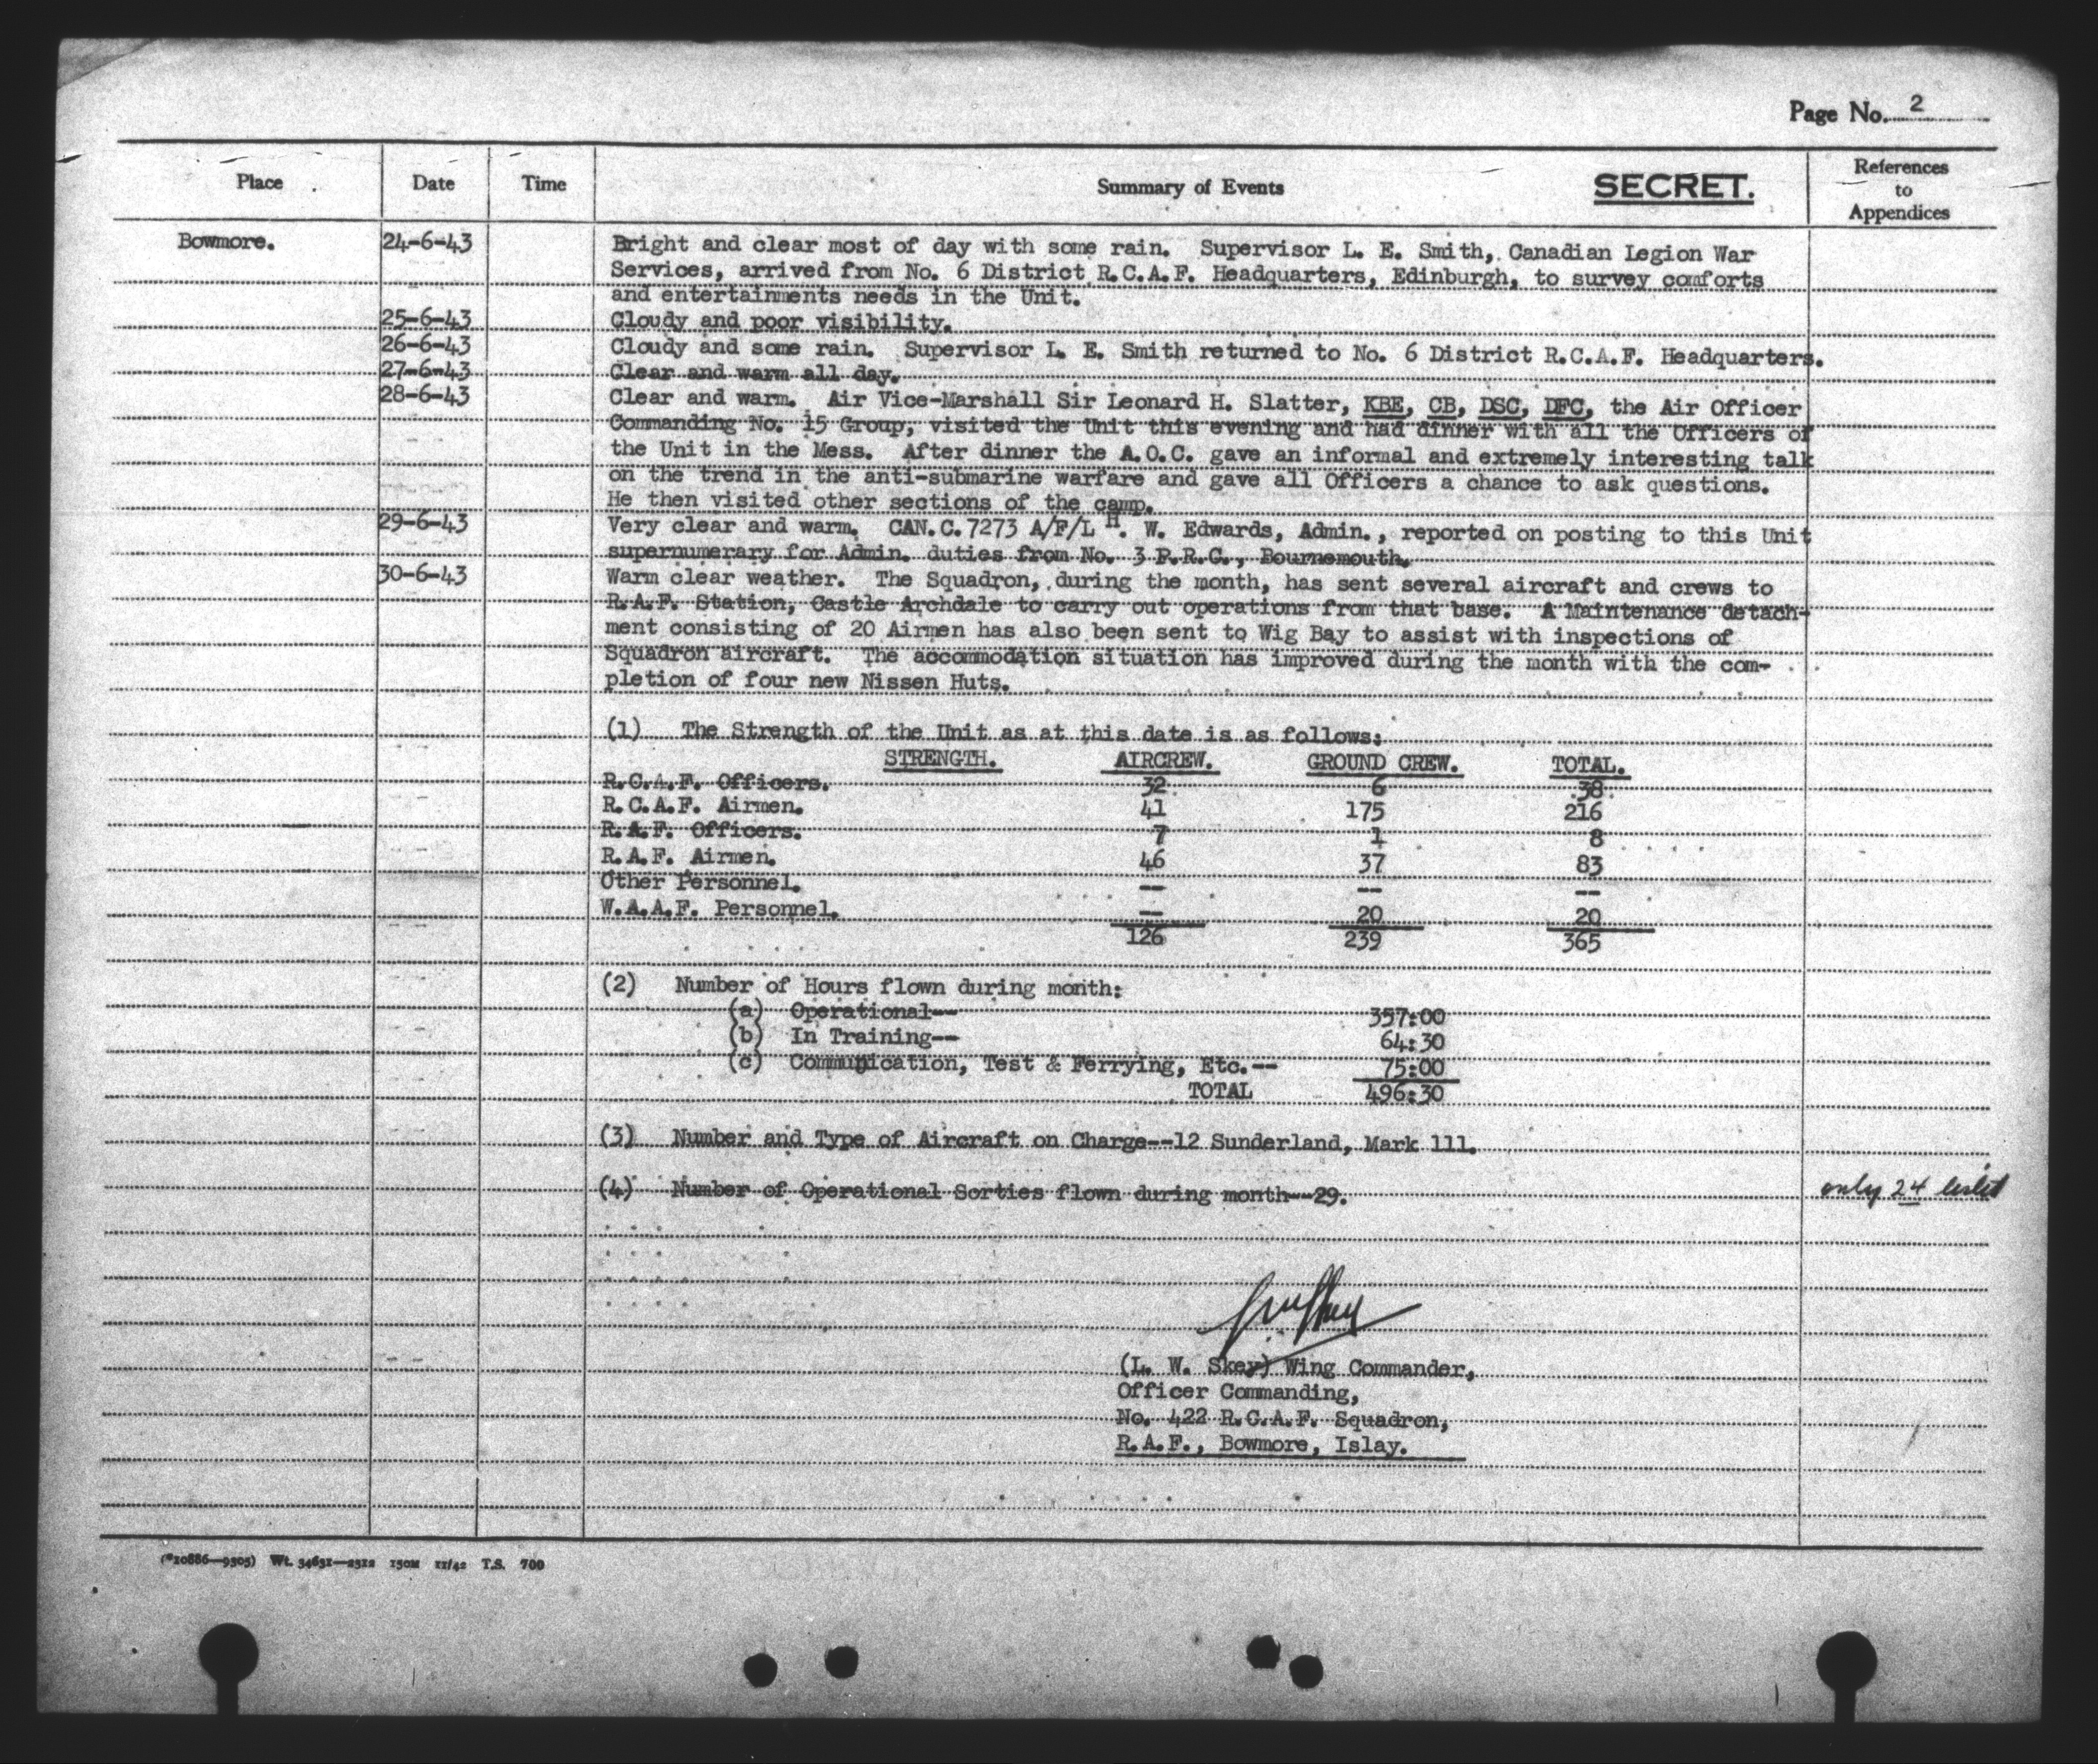 Page No. 2
Place Date Time Summary of Events SECRET. References to Appendices
Bowmore. 24-6-43 Bright and clear most of day with some rain. Supervisor L. E. Smith, Canadian Legion War
Services, arrived from No. 6 District R.C.A.F. Headquarters, Edinburgh, to survey comforts
and entertainments needs in the Unit.
25-6-43 Cloudy and poor visibility.
26-6-43 Cloudy and some rain. Supervisor L. E. Smith returned to No. 6 District R.C.A.F. Headquarters.
27-6-43 Clear and warm all day.
28-6-43 Clear and warm. Air Vice-Marshall Sir Leonard H. Slatter, KBE, CB, DSC, DFC, the Air Officer
Commanding No. 15 Group, visited the Unit this evening and had dinner with all the Officers of
the Unit in the Mess. After dinner the A.O.C. gave an informal and extremely interesting talk
on the trend in the anti-submarine warfare and gave all Officers a chance to ask questions.
He then visited other sections of the camp.
29-6-43 Very clear and warm. CAN.C.7273 A/F/L H. W. Edwards, Admin., reported on posting to this Unit
supernumerary for Admin. duties from No. 3 P.R.C., Bournemouth.
30-6-43 Warm clear weather. The Squadron, during the month, has sent several aircraft and crews to
R.A.F. Station, Castle Archdale to carry out operations from that base. A Maintenance detach-
ment consisting of 20 Airmen has also been sent to Wig Bay to assist with inspections of
Squadron aircraft. The accommodation situation has improved during the month with the com-
pletion of four new Nissen Huts.
(1) The Strength of the Unit as at this date is as follows:
STRENGTH. AIRCREW. GROUND CREW. TOTAL.
R.C.A.F. Officers. 32 6 38
R.C.A.F. Airmen. 41 175 216
R.A.F. Officers. 7 1 8
R.A.F. Airmen. 46 37 83
Other Personnel. -- -- --
W.A.A.F. Personnel. -- 20 20
126 239 365
(2) Number of Hours flown during month:
(a) Operational-- 357:00
(b) In Training-- 64:30
(c) Communication, Test & Ferrying, Etc.-- 75:00
TOTAL 496:30
(3) Number and Type of Aircraft on Charge--12 Sunderland, Mark 111.
(4) Number of Operational Sorties flown during month--29. only 24 listed
(L. W. Skey) Wing Commander,
Officer Commanding,
No. 422 R.C.A.F. Squadron,
R.A.F., Bowmore, Islay.
(*10886—9305) Wt. 34631—2312 150M 11/42 T.S. 700